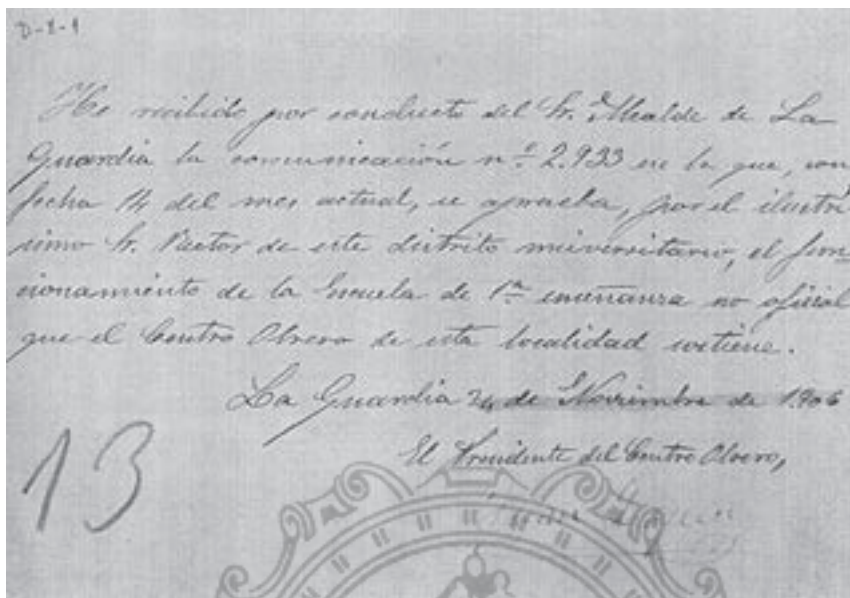 D-1-1
He recibido por conducto del Sr. Alcalde de La
Guardia la comunicación nº 2.933 en la que, con
fecha 14 del mes actual, se aprueba, por el ilustrí
simo Sr. Rector de este distrito universitario, el fun
cionamiento de la Escuela de 1ª enseñanza no oficial
que el Centro Obrero de esta localidad sostiene.
La Guardia 24 de Noviembre de 1906
El Presidente del Centro Obrero,
13